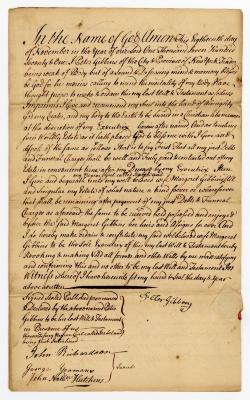 In the Name of God Amen This Eighteenth day
of November in the Year of our Lord One Thousand Seven Hundred
Seventy &amp; One I Peter Gibbens of the City &amp; Province of New York
being weak of Body but of a sound &amp; disposing mind &amp; memory blessed
be God for the mercies calling to mind the mortality of my Body have
thought proper to make &amp; ordain this my last Will &amp; Testament as follows
Imprimis I give and recommend my Soul into the hands of Almighty
God my Creator, and my body to the Earth to be buried in a Christian like manner
at the discretion of my Executrix herein after named And as touching
Worldly Estate as I shall possess I give and
dispose of the same as follows That is to say First That all my just Debts
and Funeral Charges shall be well and truly paid &amp; contented out of my
Estate in convenient time after my decease by my Executrix Item
I Give and bequeath Margaret Gibbens All
and singular my Estate of what nature, kind soever or wheresoever
that shall be remaining after payment of my just Debts &amp; Funeral
Charges as aforesaid the same to be received held possessed and enjoyed
by her the said Margaret Gibbens her heirs and Assigns for ever And
I do hereby make ordain &amp; constitute my said beloved Margaret
Gibbens to be the sole Executrix of this my last Will &amp; Testament hereby
Revoking &amp; making void all former and other Wills by me made ratifying
and confirming this and no other to be my last Will and Testament In
Witness whereof I have hereunto set my hand &amp; seal the day &amp; Year
above written
Signed Sealed Published pronounced
&amp; declared by the above named Peter
Gibbens to be his last Will &amp; Testament
in Presence of us
being first
Peter Gibbens
John Richardson
George Yeomans
John Hutchins